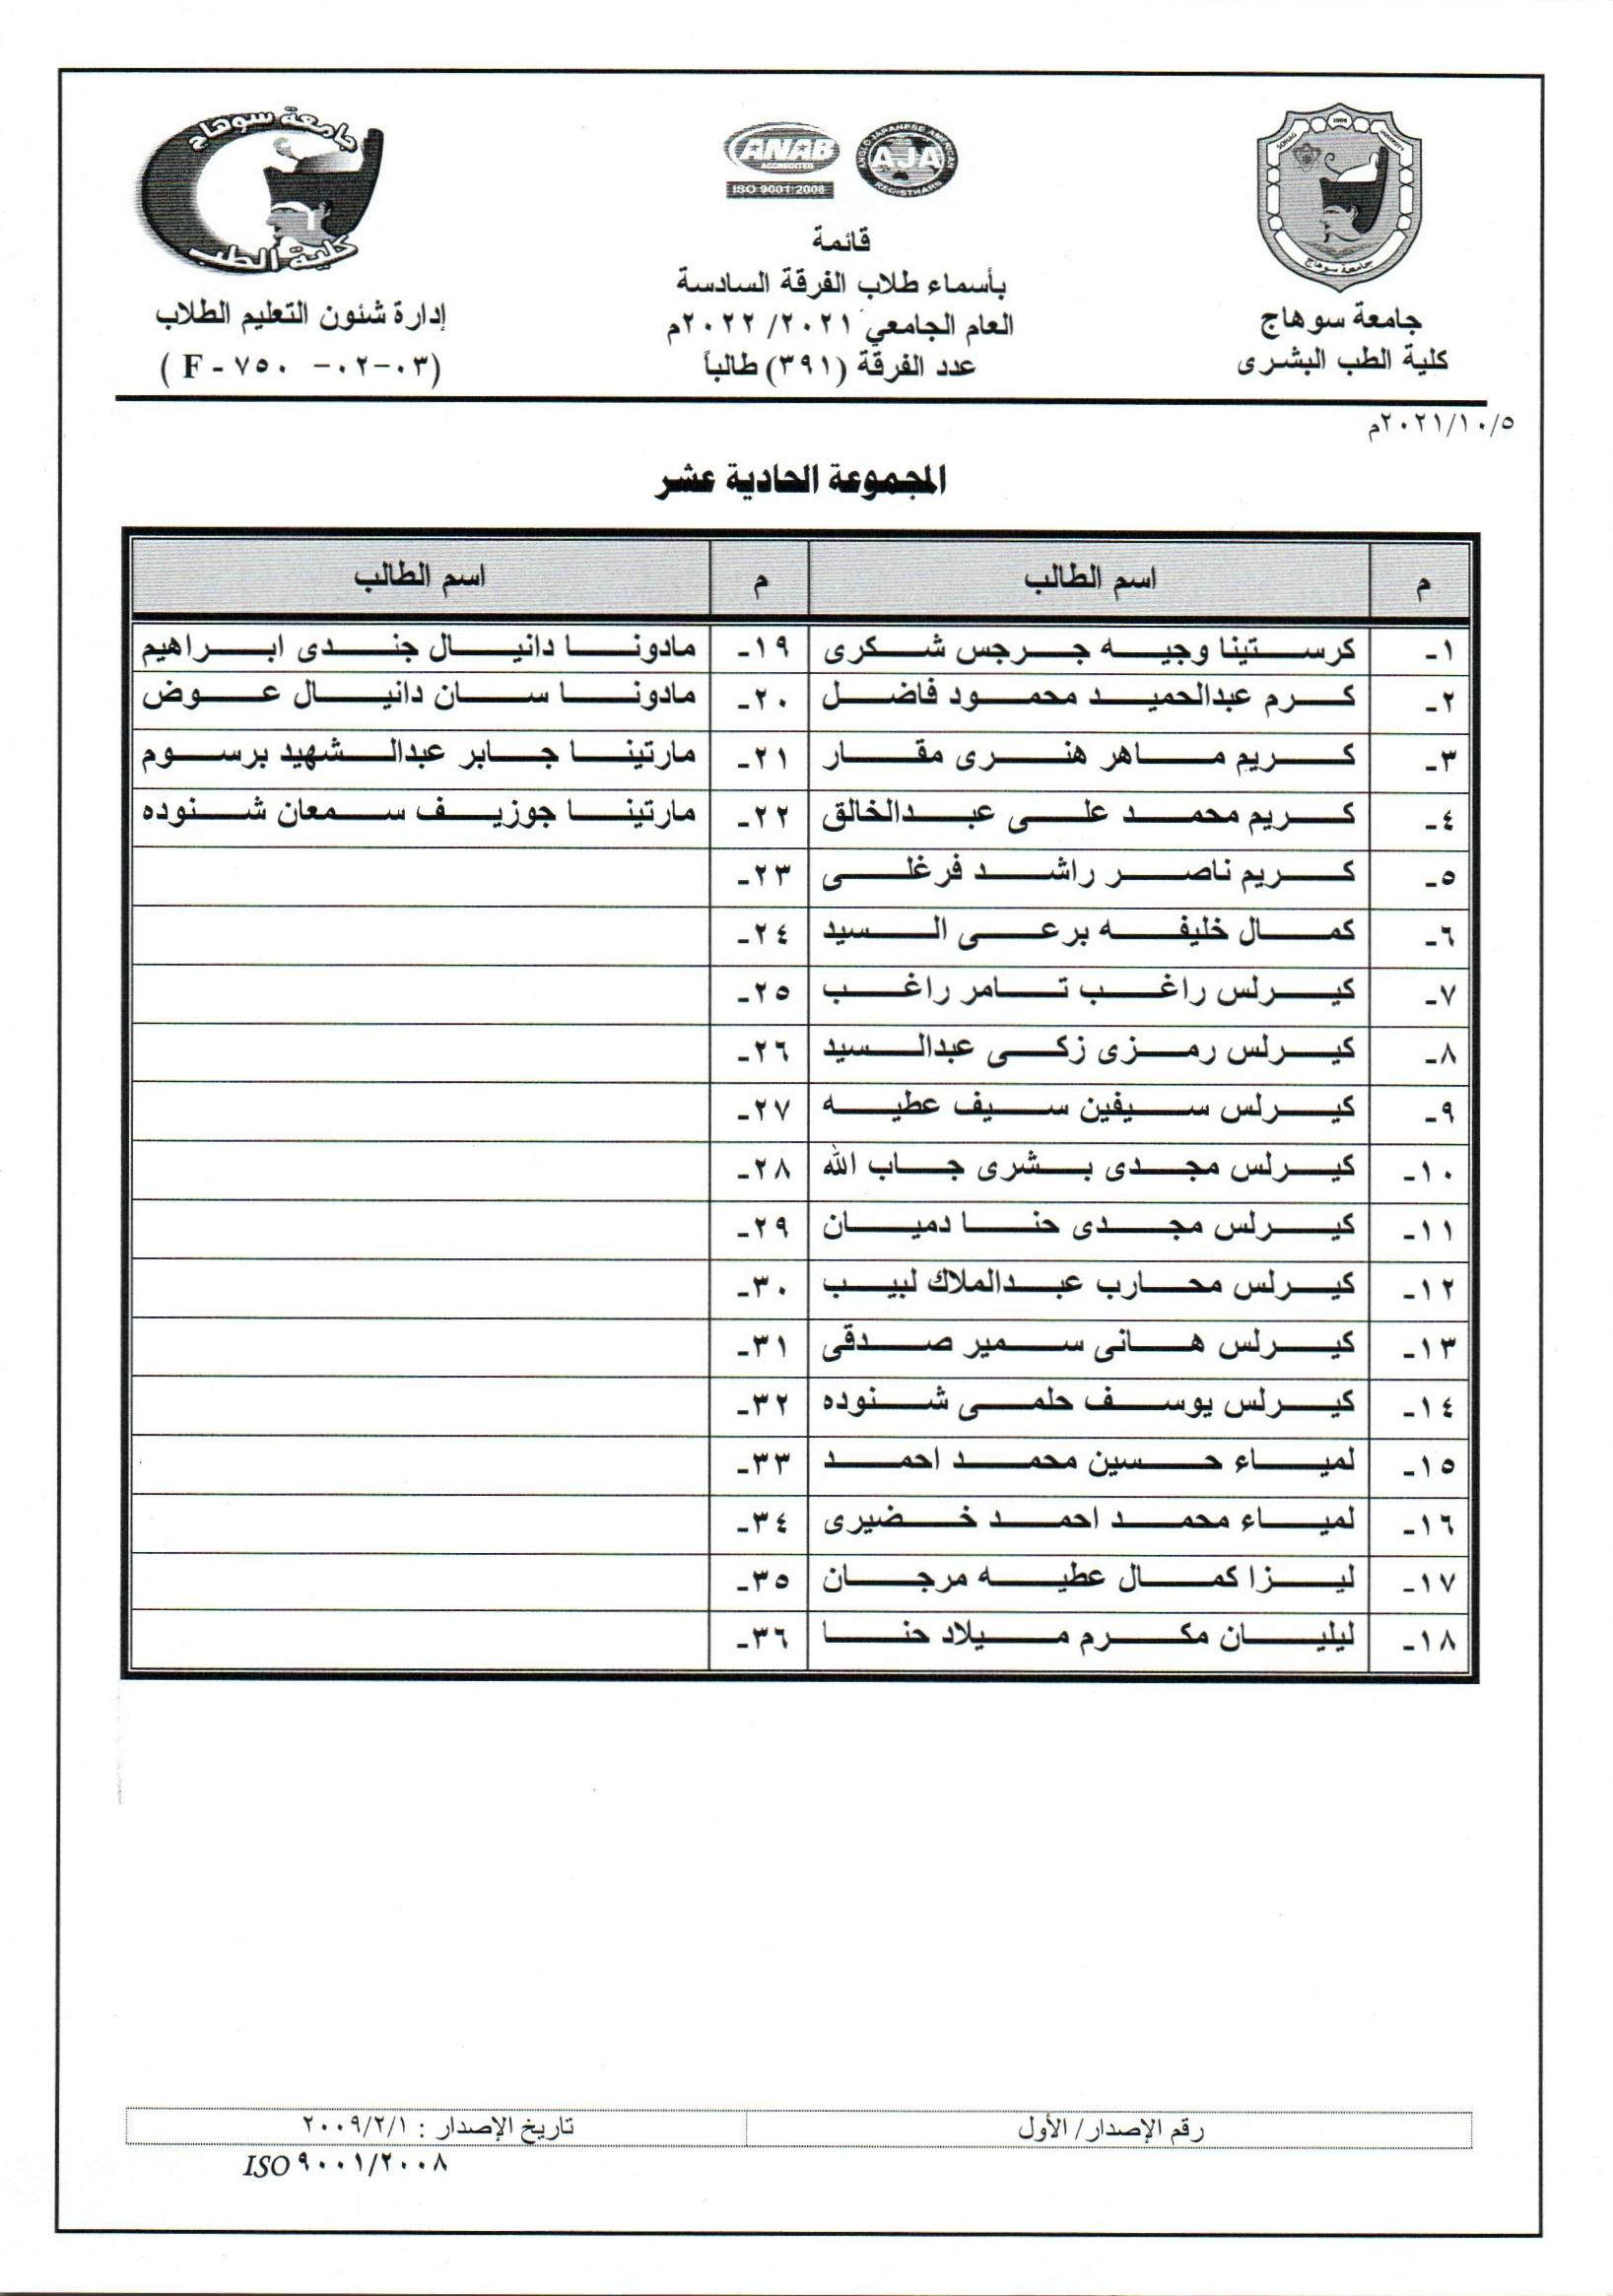 جامعة سوهاج
كلية الطب البشرى
ANAB
ACCREDITED
ISO 9001:2008
ANGLO JAPANESE AMERICAN
AJA
REGISTRARS
قائمة
بأسماء طلاب الفرقة السادسة
العام الجامعي ٢٠٢١/ ٢٠٢٢م
عدد الفرقة (٣٩١) طالباً
جامعة سوهاج
كلية الطب
إدارة شئون التعليم الطلاب
(F - ٧٥٠ -٠٢-٠٣)
٢٠٢١/١٠/٥م
المجموعة الحادية عشر
م اسم الطالب م اسم الطالب
١- كرستينا وجيه جرجس شكرى ١٩- مادونا دانيال جندى ابراهيم
٢- كرم عبدالحميد محمود فاضل ٢٠- مادونا سان دانيال عوض
٣- كريم ماهر هنرى مقار ٢١- مارتينا جابر عبدالشهيد برسوم
٤- كريم محمد على عبدالخالق ٢٢- مارتينا جوزيف سمعان شنوده
٥- كريم ناصر راشد فرغلى ٢٣-
٦- كمال خليفه برعى السيد ٢٤-
٧- كيرلس راغب تامر راغب ٢٥-
٨- كيرلس رمزى زكى عبدالسيد ٢٦-
٩- كيرلس سيفين سيف عطيه ٢٧-
١٠- كيرلس مجدى بشرى جاب الله ٢٨-
١١- كيرلس مجدى حنا دميان ٢٩-
١٢- كيرلس محارب عبدالملاك لبيب ٣٠-
١٣- كيرلس هانى سمير صدقى ٣١-
١٤- كيرلس يوسف حلمى شنوده ٣٢-
١٥- لمياء حسين محمد احمد ٣٣-
١٦- لمياء محمد احمد خضيرى ٣٤-
١٧- ليزا كمال عطيه مرجان ٣٥-
١٨- ليليان مكرم ميلاد حنا ٣٦-
رقم الإصدار/ الأول تاريخ الإصدار : ٢٠٠٩/٢/١
ISO ٩٠٠١/٢٠٠٨